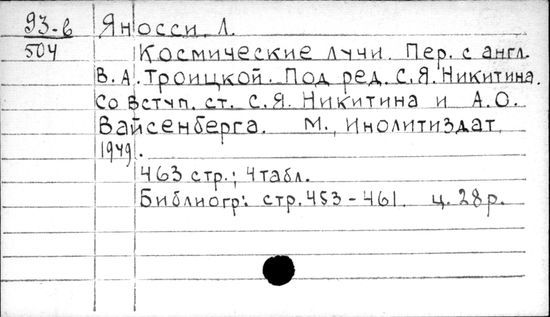 93-в Яносси, Л.
504 Космические лучи. Пер. с англ.
В.А. Троицкой. Под ред. С.Я. Никитина.
Со вступ. ст. С.Я. Никитина и А.О.
Вайсенберга. М., Инолитиздат,
1949.
463 стр.; 4 табл.
Библиогр: стр. 453-461. ц. 28 р.